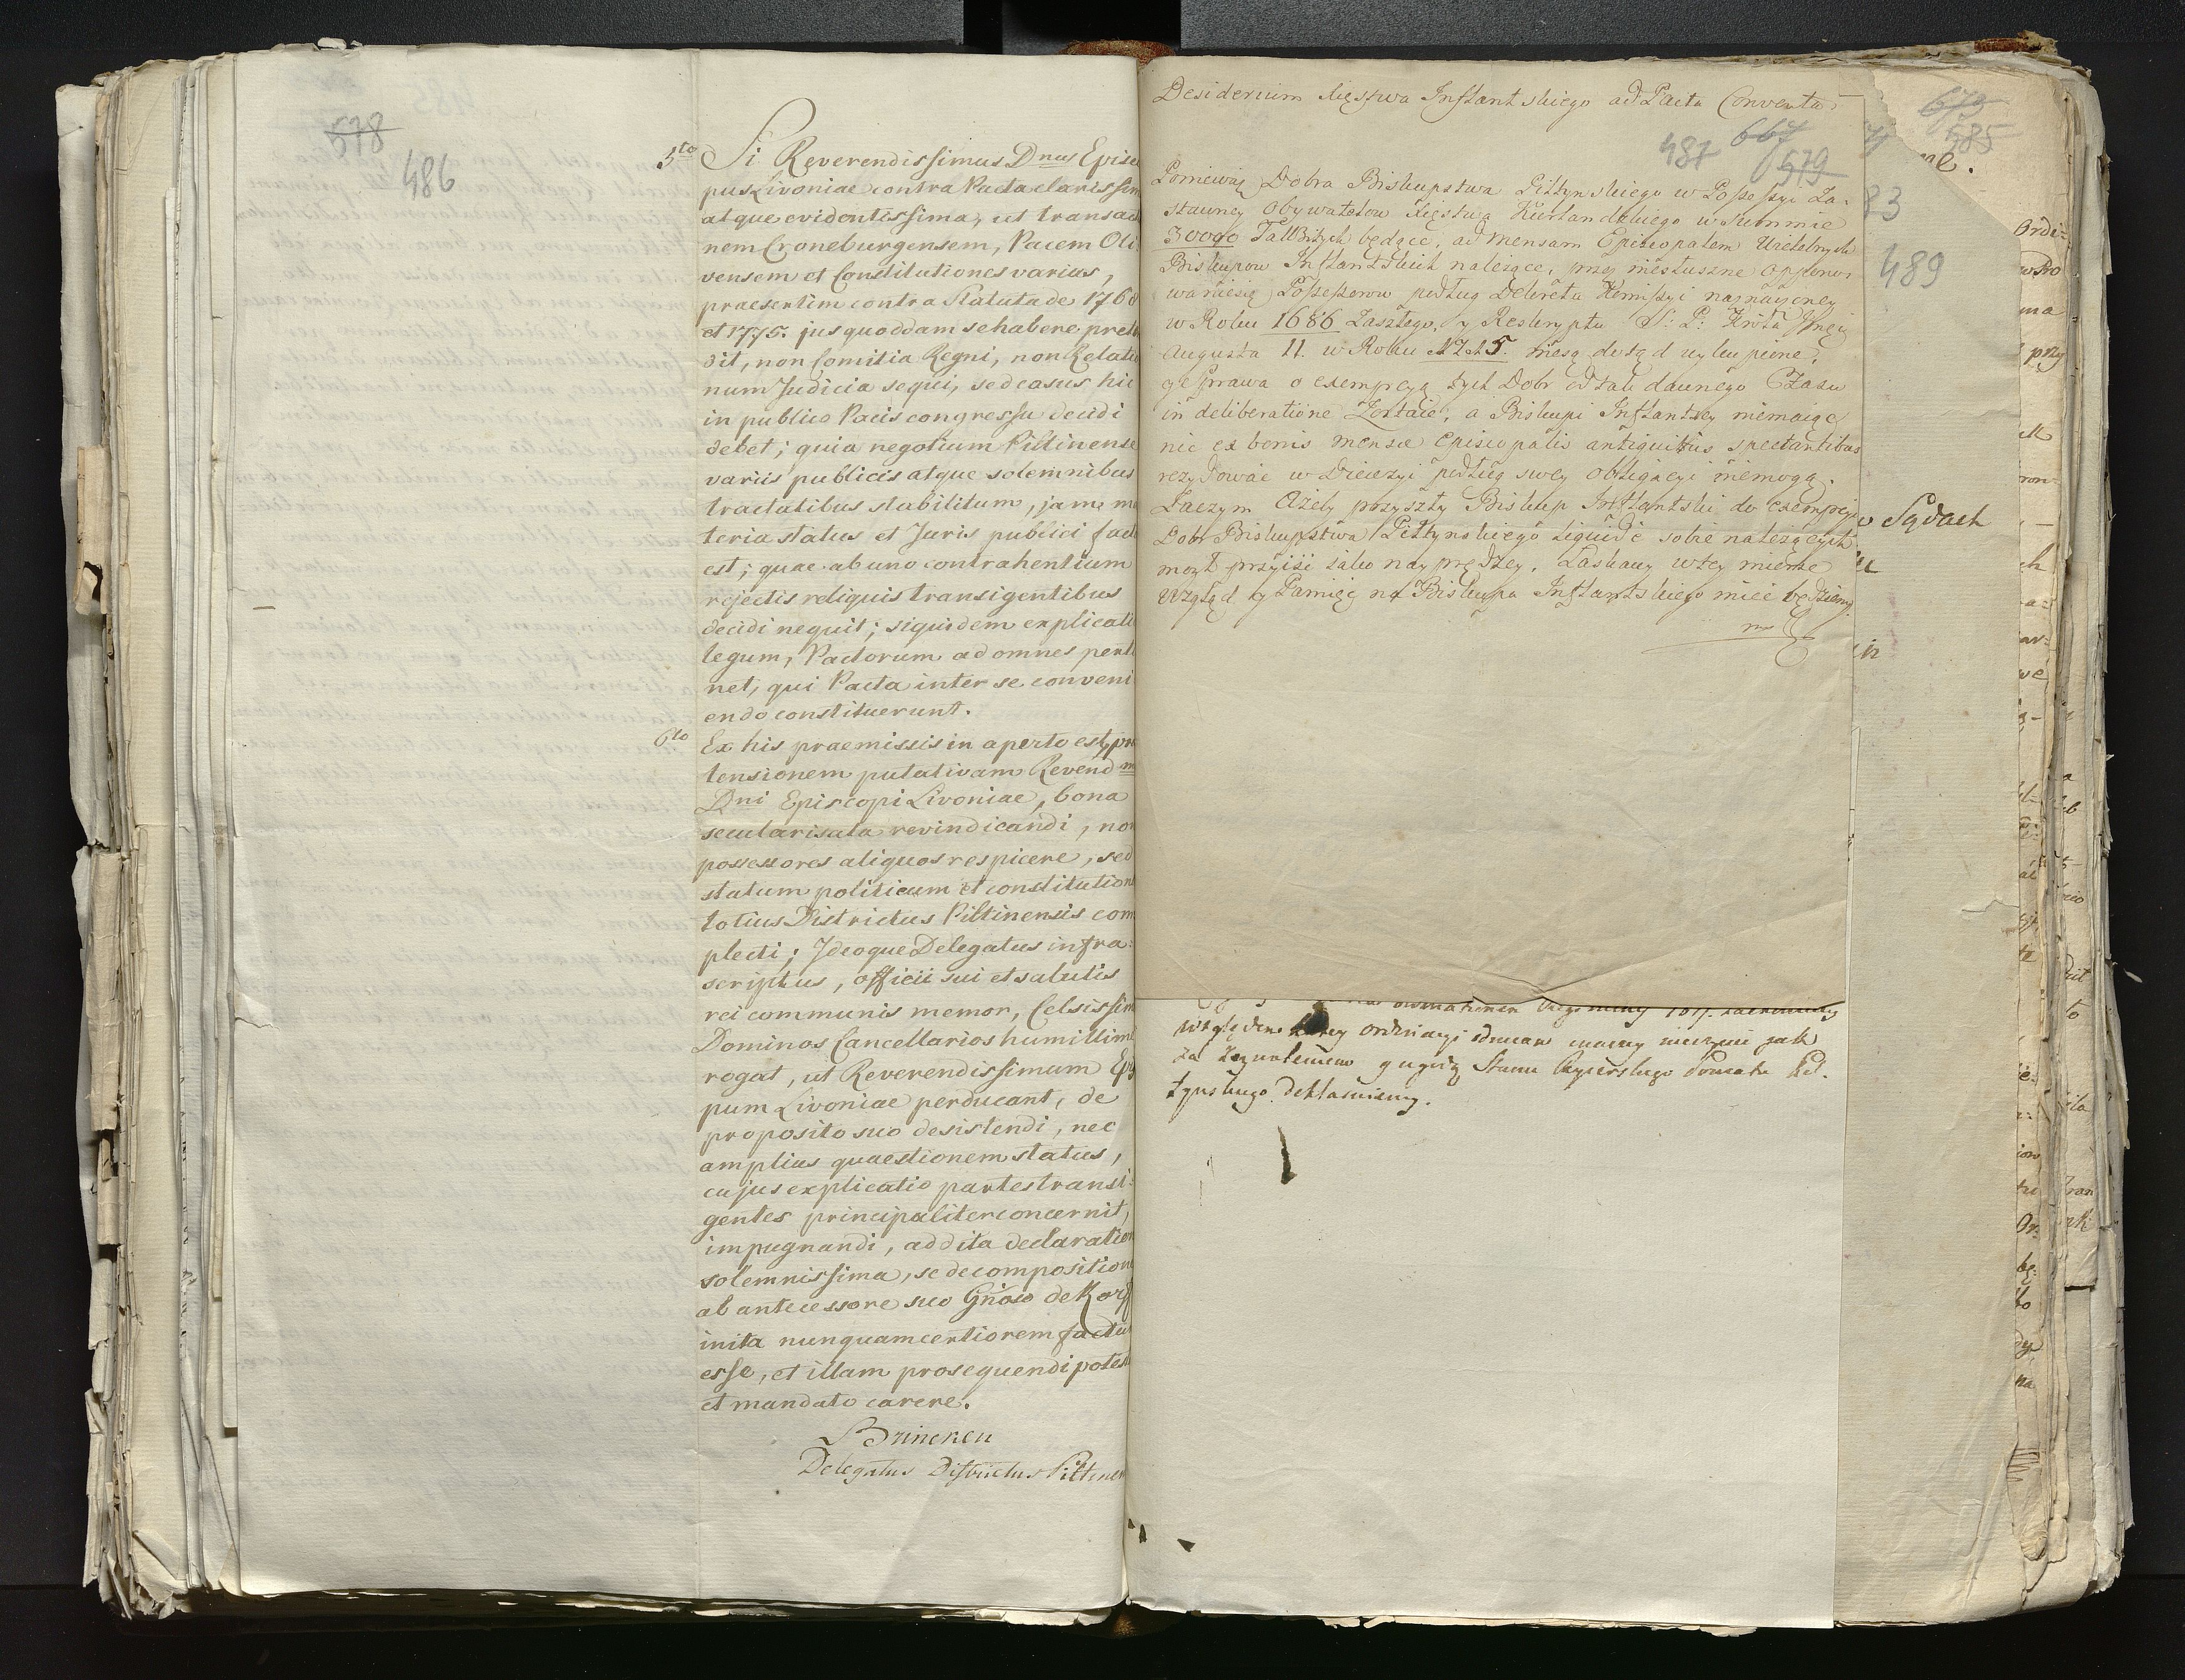 578
486
5to Si Reverendissimus Dnus Episco
pus Livoniae contra Pacta clarissim
atque evidentissima, ut transac
nem Croneburgensem, Pacem Oli
vensem et Constitutiones varias,
praesertim contra Statuta de 1768
et 1775. jus quoddam se habere prete
dit, non Comitia Regni, non Relatio
num Judicia sequi, sed casus hic
in publico Pacis congressu decidi
debet; quia negotium Piltinense
variis publicis atque solemnibus
tractatibus stabilitum, jam ma
teria status et Juris publici fact
est; quae ab uno contrahentium
rejectis reliquis transigentibus
decidi nequit; siquidem explicati
legum, Pactorum ad omnes perti
net, qui Pacta inter se conveni
endo constituerunt.
6to Ex his praemissis in aperto est, prae
tensionem putativam Revendmi
Dni Episcopi Livoniae, bona
secularisata revindicandi, non
possessores aliquos respicere, sed
statum politicum et constitution
totius Districtus Piltinensis com
plecti; Ideoque Delegatus infra
scriptus, officii sui et salutis
rei communis memor, Celsissim
Dominos Cancellarios humillime
rogat, ut Reverendissimum Eps
pum Livoniae perducant, de
proposito suo desistendi, nec
amplius quaestionem status,
cujus explicatio partes transi
gentes principaliter concernit,
impugnandi, addita declaration
solemnissima, se de composition
ab antecessore suo Gñoso de Korf
inita nunquam certiorem factu
esse, et illam prosequendi potest
et mandato carere.
Brincken
Delegatus Districtus Piltinen
Desiderium Xięstwa Inflantskiego ad Pacta Conventa
487 667 579
Poniewaz Dobra Biskupstwa Piltynskiego w Possessyi Za-
stawney Obywatelow Xięstwa Kurlandzkiego w Summie
30000 Tall Bitych będące, ad mensam Episcopalem Wielebnych
Biskupow Inflantskich nalezące, przy niesłuszne Oppono-
waniesię Possessorow podług Dekretu Komissyi naznaczoney
w Roku 1686 Zaszłego, y Reskryptu S: P: Krola Jmci
Augusta II. w Roku 1715. niesą dotąd wykupione,
ze Sprawa o exempcyą tych Dobr od tak dawnego Czasu
in deliberatione Zostaie, a Biskupi Inflantscy niemaiąc
nic ex bonis mensae Episcopalis antiquitus spectantibus
rezydować w Diecezyi podług swey obligacyi niemogą.
Zaczym Azeby przyszły Biskup Inflantski do exempcyi
Dobr Biskupstwa Piltynskiego liquide sobie nalezących
mogł przyiść iako nayprędzey, Łaskawy w tey mierze
Wzgląd y Pamięć na Biskupa Inflantskiego mieć będziemy.
względem
ordynacyi
jak
za
Stanu
Powiatu Pil-
tynskiego deklaruiemy.
673
585
83
489
w Sądach